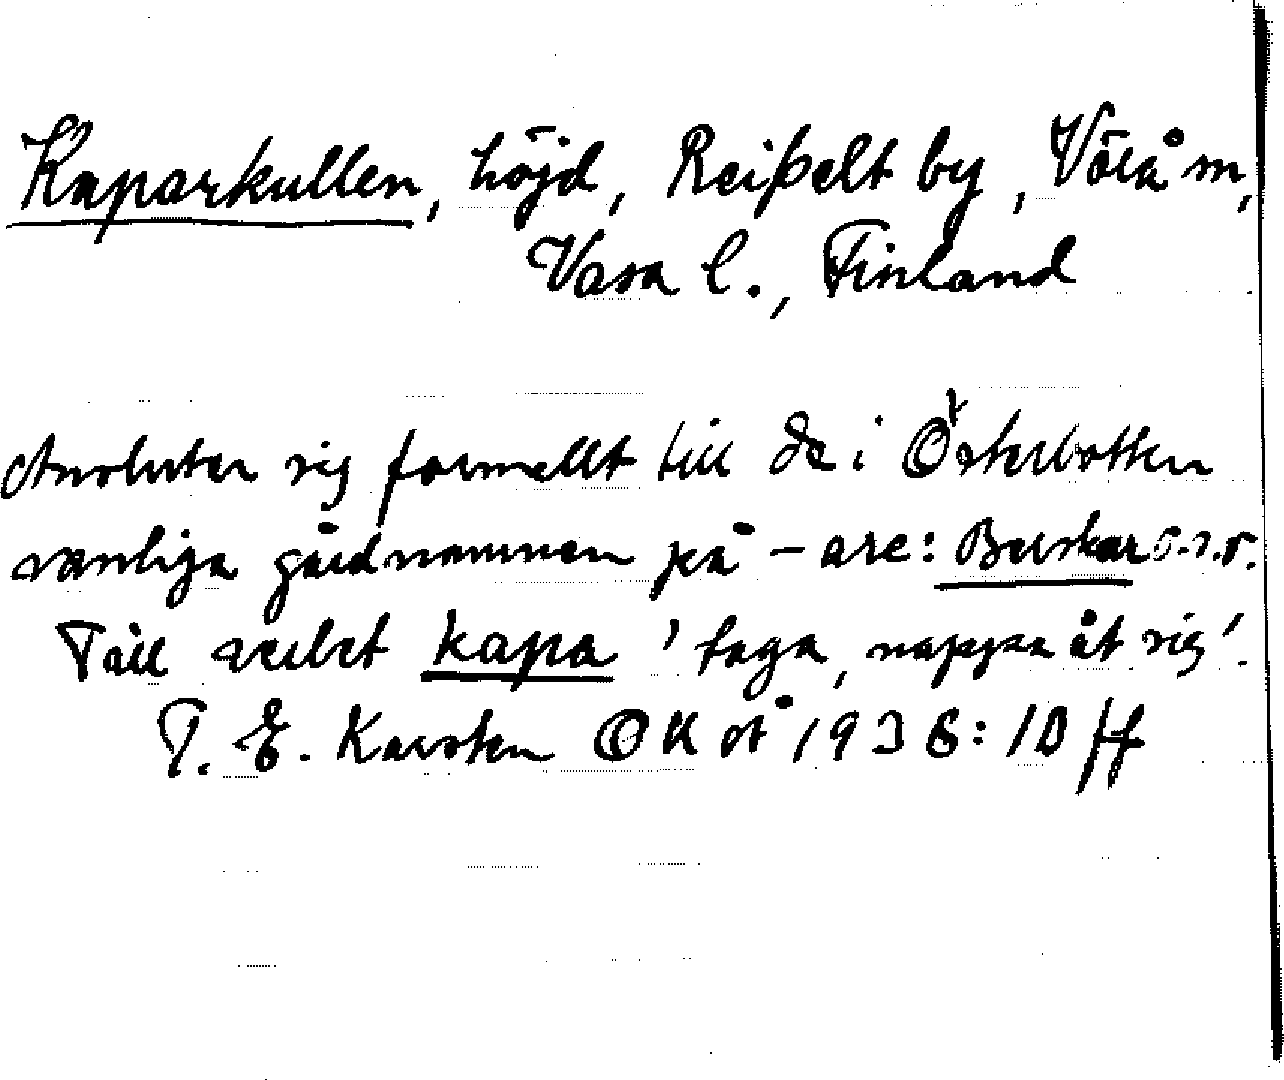 Kaparkullen, höjd, Reipelt by, Vörå m,
Vasa l., Finland
Ansluter sig formellt till de i Österbotten
vanliga gårdnamnen på -are: Burskar o.s.v.
Till verbet kapa 'taga, nappa åt sig'.
T. E. Karsten OK ot 1936: 10 ff